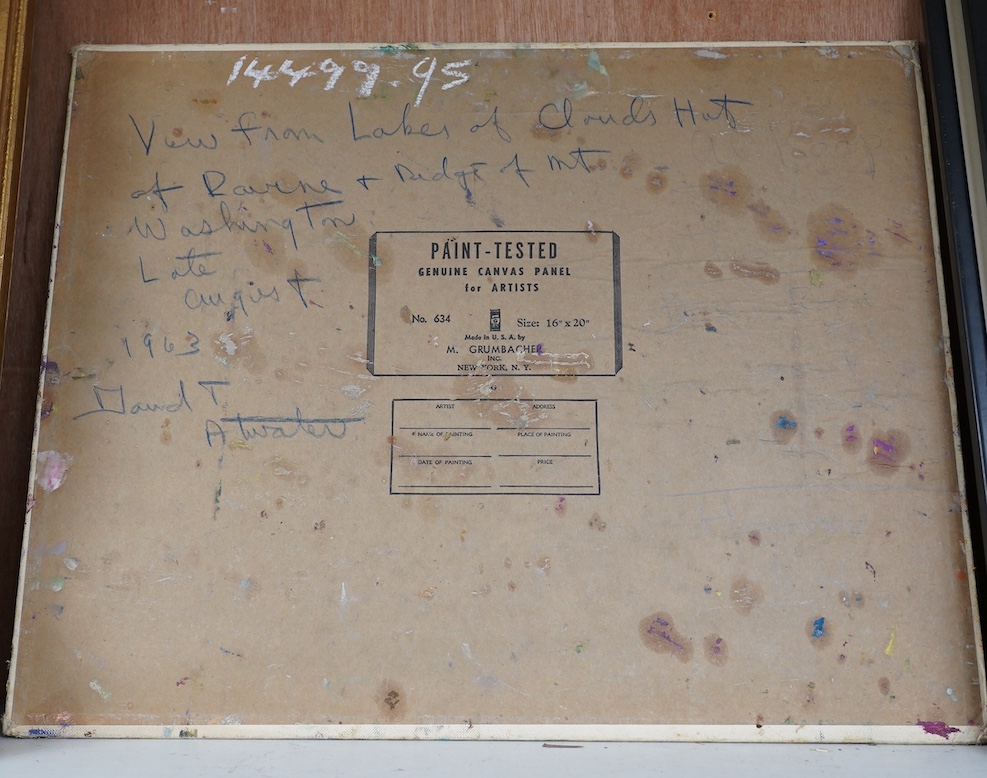 14499.95
View from Lakes of Clouds Hut
of Ravine + Ridge of Mt
Washington
Late
august
1963
David T
Atwater
PAINT-TESTED
GENUINE CANVAS PANEL
for ARTISTS
No. 634 Size: 16" x 20"
Made in U. S. A. by
M. GRUMBACHER
INC.
NEW YORK, N. Y.
ARTIST ADDRESS
NAME OF PAINTING PLACE OF PAINTING
DATE OF PAINTING PRICE